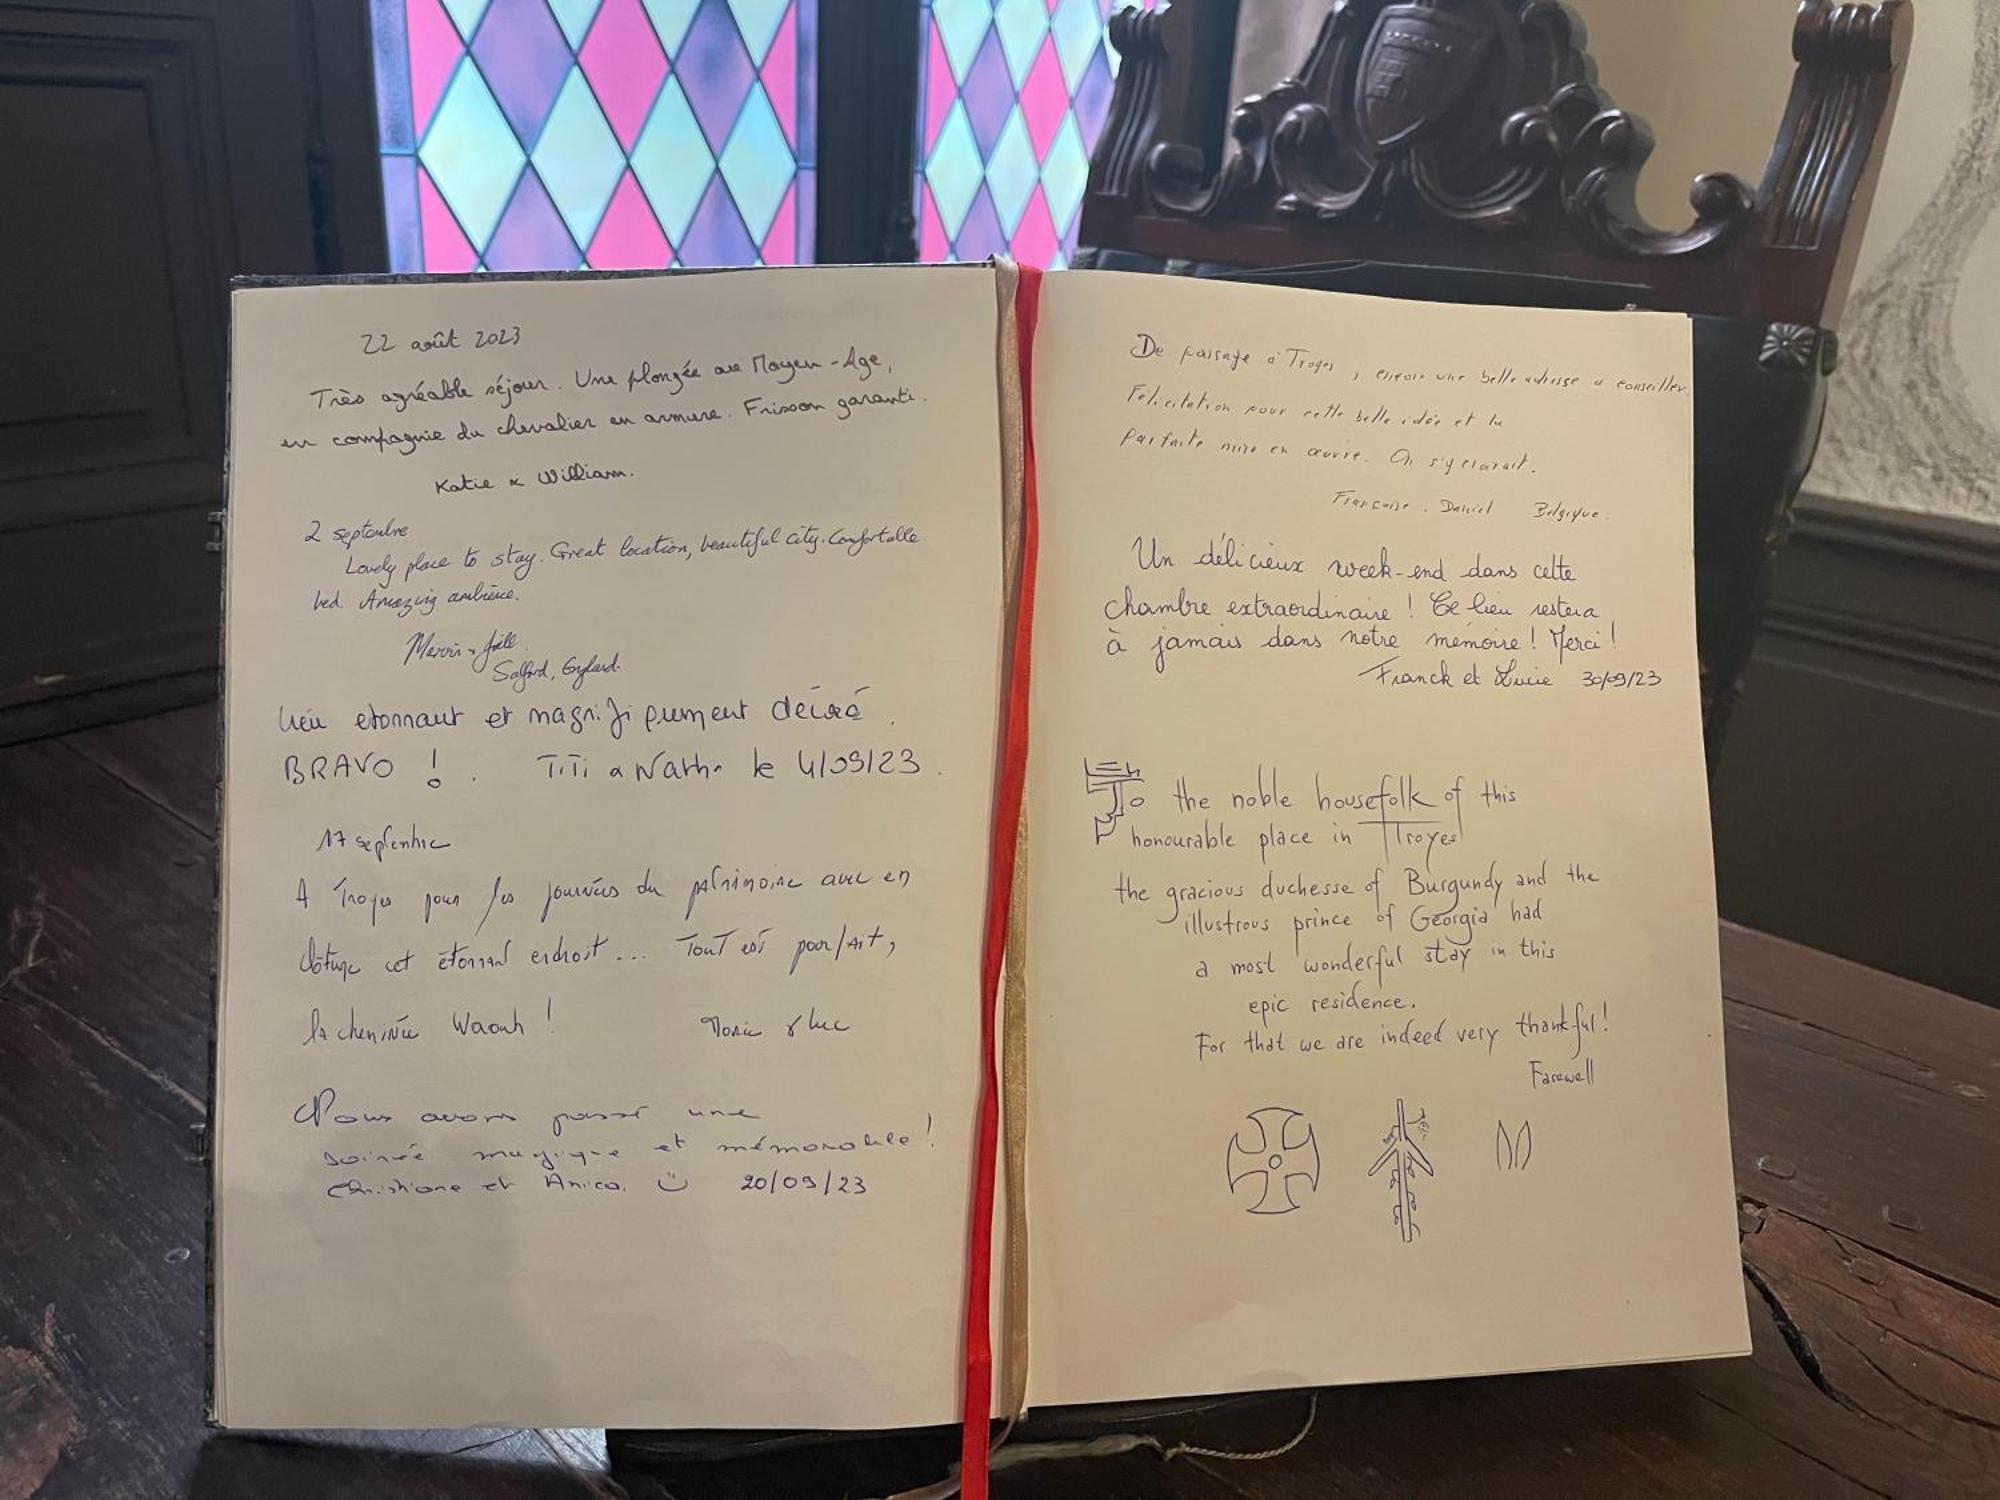 22 août 2023
Très agréable séjour. Une plongée au Moyen-Age,
en compagnie du chevalier en armure. Frisson garanti.
Katie & William.
2 septembre
Lovely place to stay. Great location, beautiful city. Comfortable
bed. Amazing ambience.
Salford, England.
Lieu etonnant et magnifiquement décoré.
BRAVO ! . TiTi a Nath. le 4/09/23.
17 septembre
A Troyes pour les journées du patrimoine avec en
clôture cet étonnant endroit... Tout est parfait,
la cheminée Waouh !
& Luc
Nous avons passé une
soirée magique et mémorable !
Christiane et 20/09/23
De passage à Troyes, encore une belle adresse a conseiller
Félicitation pour cette belle idée et la
parfaite mise en œuvre. On s'y croirait.
Françoise . Daniel Belgique.
Un délicieux week-end dans cette
chambre extraordinaire ! Ce lieu restera
à jamais dans notre mémoire ! Merci !
Franck et Lucie 30/09/23
To the noble housefolk of this
honourable place in Troyes
the gracious duchesse of Burgundy and the
illustrous prince of Georgia had
a most wonderful stay in this
epic residence.
For that we are indeed very thankful!
Farewell